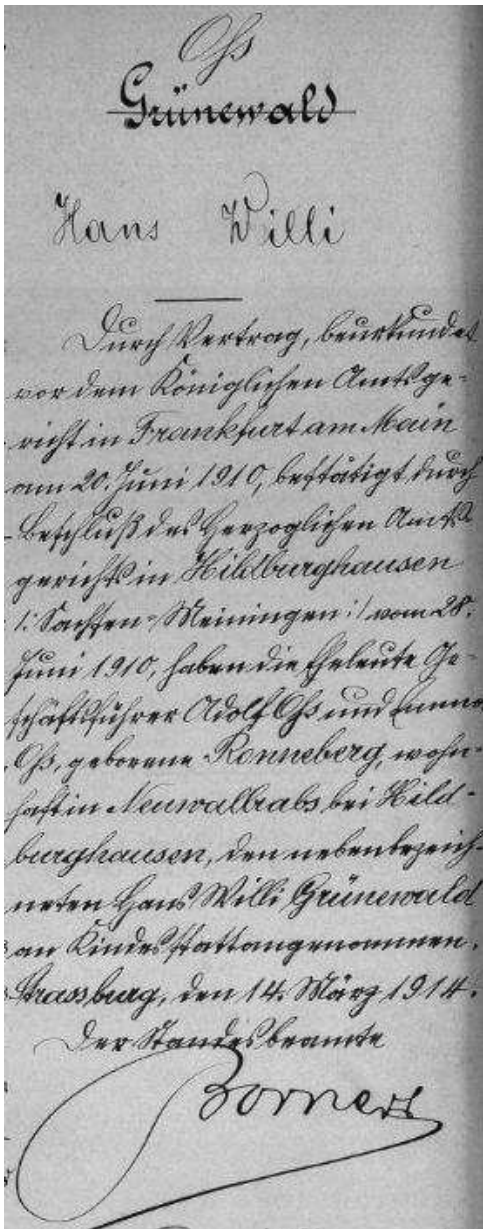 Oß
Grünewald
Hans Willi
Durch Vertrag, beurkundet
vor dem Königlichen Amtsge-
richt in Frankfurt am Main
am 20. Juni 1910, bestätigt durch
Beschluß des Herzoglichen Amts-
gerichts in Hildburghausen
/: Sachsen-Meiningen :/ vom 28.
Juni 1910, haben die Eheleute Ge-
schäftsführer Adolf Oß und Emma
Oß, geborene Ronneberg, wohn-
haft in Neuwallrabs bei Hild-
burghausen, den nebenbezeich-
neten Hans Willi Grünewald
an Kindesstatt angenommen.
Strassburg, den 14. März 1914.
Der Standesbeamte